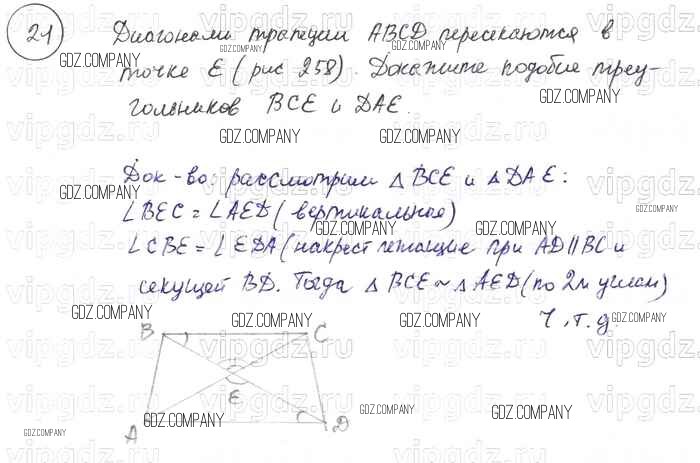 21
Диагонали трапеции ABCD пересекаются в
точке E (рис 258). Докажите подобие треу-
гольников BCE и DAE.
Док-во: рассмотрим △ BCE и △ DAE:
∠BEC = ∠AED (вертикальное)
∠CBE = ∠EDA (накрест лежащие при AD || BC и
секущей BD. Тогда △ BCE ~ △ AED (по 2м углам)
ч.т.д.
B C
E
A D
GDZ.COMPANY
vipgdz.ru